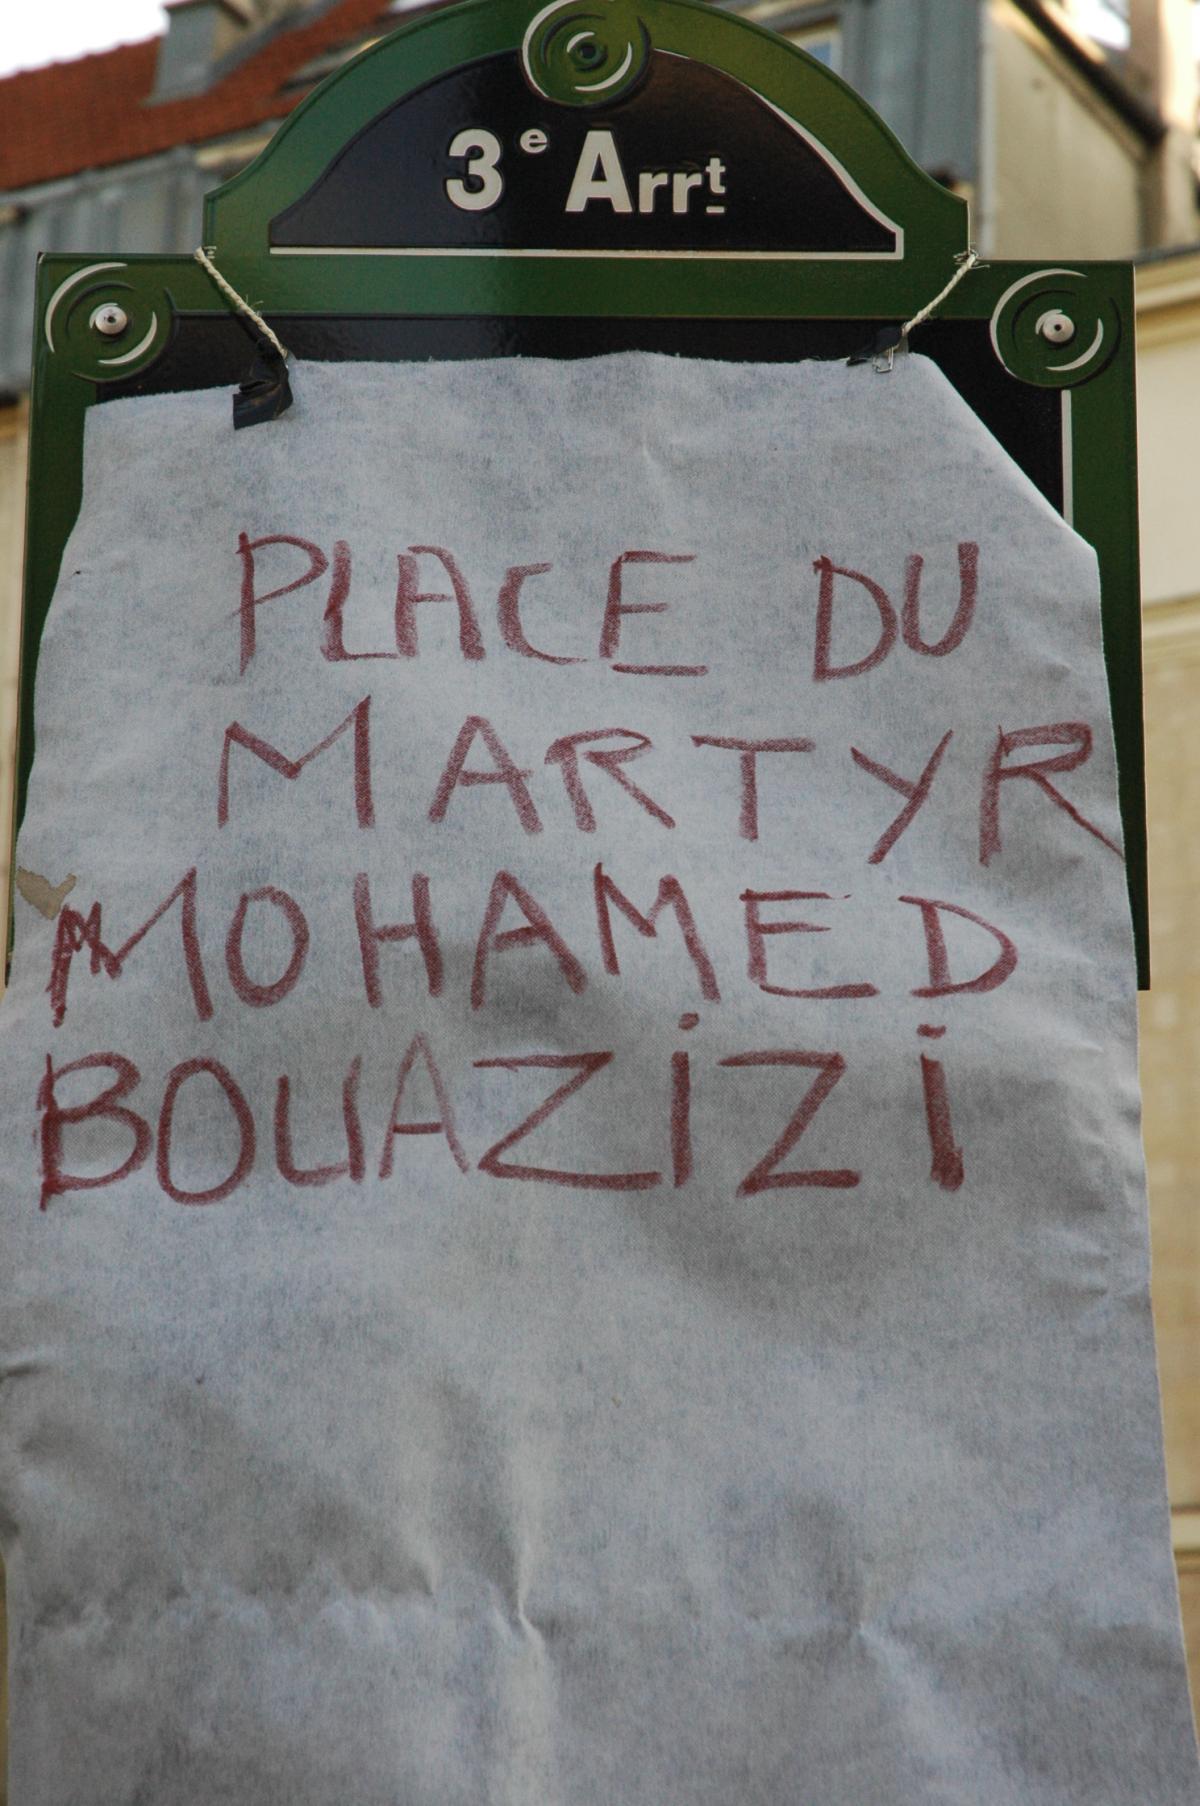 3e Arrt
PLACE DU
MARTYR
MOHAMED
BOUAZiZi